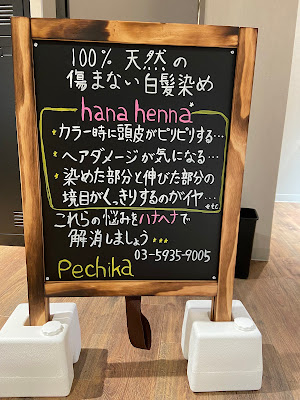 100% 天然の
傷まない白髪染め
hana henna*
* カラー時に頭皮がピリピリする…
* ヘアダメージが気になる…
* 染めた部分と伸びた部分の
境目がくっきりするのがイヤ…
*etc
これらの悩みをハナヘナで
解消しましょう***
Pechika
03-5935-9005